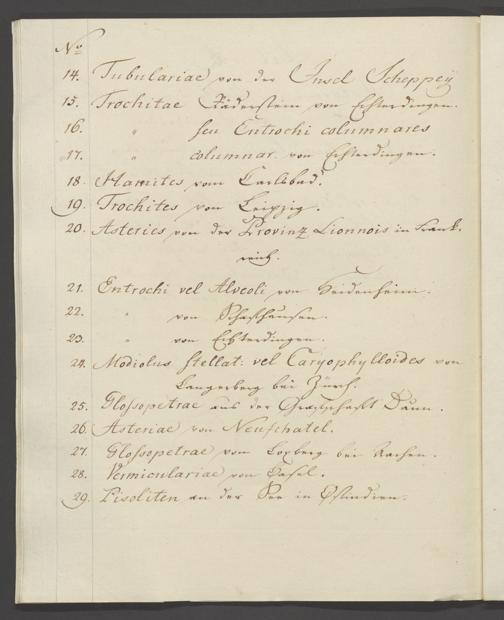 No
14. Tubulariae von der Insel Scheppey
15. Trochitae Räderstein von Echterdingen.
16. " seu Entrochi columnares
17. " columnar. von Echterdingen.
18. Hamites vom Carlsbad.
19. Trochites von Leipzig.
20. Asteries von der Provinz Lionnois in Frank-
reich.
21. Entrochi vel Alveoli von Heidenheim.
22. " von Schafhausen.
23. " von Echterdingen.
24. Modiolus stellat: vel Caryophylloides von
Langerberg bei Zürch.
25. Glossopetrae aus der Grafschafft Daun.
26. Asteriae von Neufchatel.
27. Glossopetrae vom Loxberg bei Aachen.
28. Vermiculariae von Basel.
29. Pisoliten an der See in Ostindien.